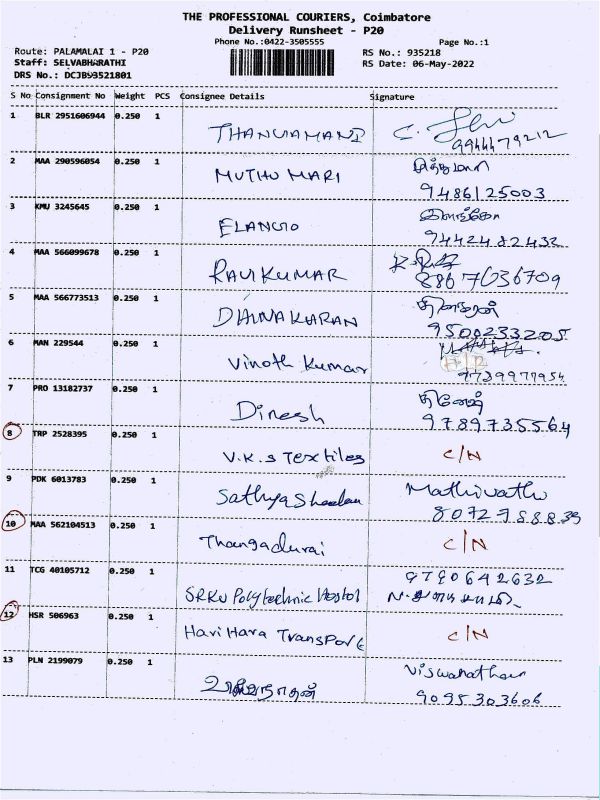 THE PROFESSIONAL COURIERS, Coimbatore
Delivery Runsheet - P20
Phone No.:0422-3505555
Page No.:1
Route: PALAMALAI 1 - P20
RS No.: 935218
Staff: SELVABHARATHI
RS Date: 06-May-2022
DRS No.: DCJB93521801
S No Consignment No Weight PCS Consignee Details Signature
1 BLR 2951606944 0.250 1
THANGAMANI C.
9944479212
2 MAA 290596054 0.250 1
MUTHU MARI முத்துமாரி
9486125003
3 KMU 3245645 0.250 1
ELANGO இளங்கோ
9442482433
4 MAA 566099678 0.250 1
RAVIKUMAR
8867036709
5 MAA 566773513 0.250 1
DHINAKARAN தினகரன்
9500233205
6 MAN 229544 0.250 1
Vinoth Kumar
7 PRO 13182737 0.250 1
Dinesh தினேஷ்
9789735564
8 TRP 2528395 0.250 1
V.K.S Textiles C/N
9 PDK 6013783 0.250 1
Mathivathi
8072988839
10 MAA 562104513 0.250 1
Thangadurai C/N
11 TCG 40105712 0.250 1
9790642632
SRKV Polytechnic Hostel
12 HSR 506963 0.250 1
Hari Hara Transport C/N
13 PLN 2199079 0.250 1
Viswanathan
விஸ்வநாதன்
9095303606